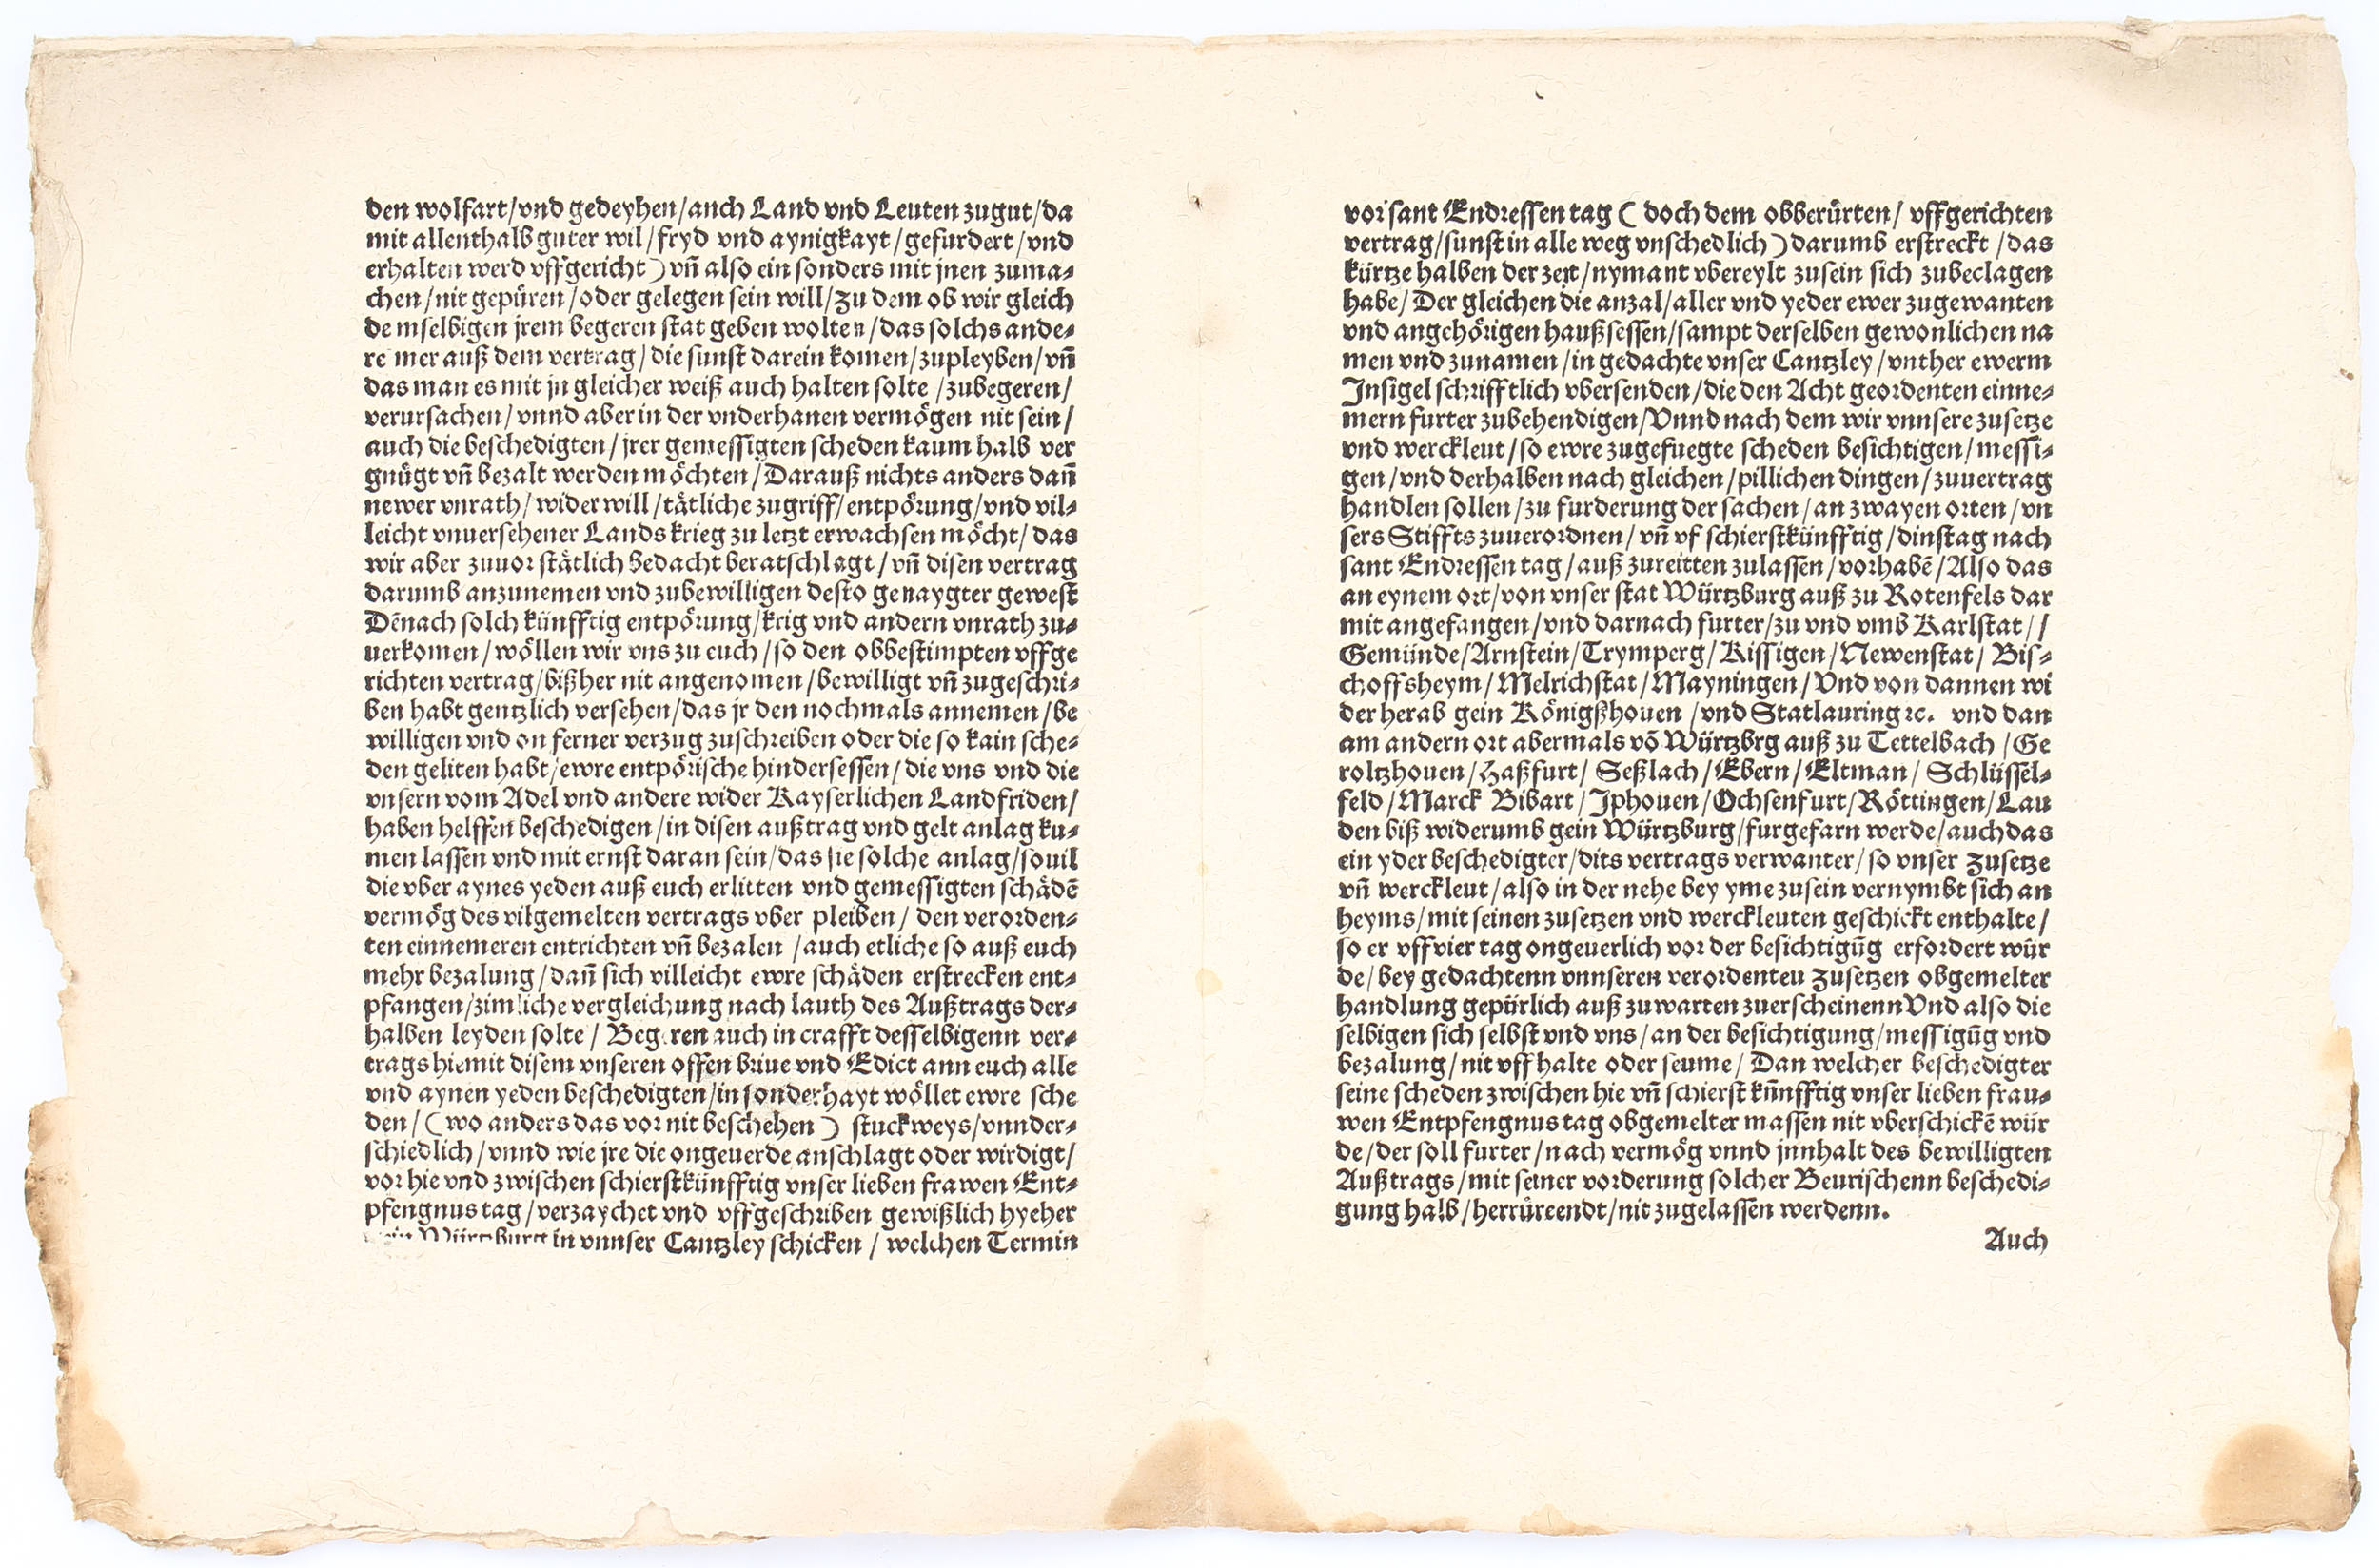 den wolfart/vnd gedeyhen/anch Land vnd Leuten zugut/da
mit allenthalb guter wil/fryd vnd aynigkayt/gefurdert/vnd
erhalten werd vffgericht) vn̄ also ein sonders mit jnen zuma⸗
chen/nit gepüren/oder gelegen sein will/zu dem ob wir gleich
de mselbigen jrem begeren stat geben wolten/das solchs ande⸗
re mer auß dem vertrag/die sunst darein komen/zupleyben/vn̄
das man es mit jn gleicher weiß auch halten solte/zubegeren/
verursachen/vnnd aber in der vnderhanen vermögen nit sein/
auch die beschedigten/jrer gemessigten scheden kaum halb ver
gnügt vn̄ bezalt werden möchten/Darauß nichts anders dan̄
newer vnrath/widerwill/tätliche zugriff/entpörung/vnd vil⸗
leicht vnuersehener Lands krieg zu letzt erwachsen möcht/das
wir aber zuuor stätlich bedacht beratschlagt/vn̄ disen vertrag
darumb anzunemen vnd zubewilligen desto genaygter gewest
Dēnach solch künfftig entpörung/krig vnd andern vnrath zu⸗
uerkomen/wöllen wir vns zu euch/so den obbestimpten vffge
richten vertrag/bißher nit angenomen/bewilligt vn̄ zugeschri⸗
ben habt gentzlich versehen/das jr den nochmals annemen/be
willigen vnd on ferner verzug zuschreiben oder die so kain sche⸗
den geliten habt/ewre entpörische hindersessen/die vns vnd die
vnsern vom Adel vnd andere wider Kayserlichen Landfriden/
haben helffen beschedigen/in disen außtrag vnd gelt anlag ku⸗
men lassen vnd mit ernst daran sein/das sie solche anlag/souil
die vber aynes yeden auß euch erlitten vnd gemessigten schädē
vermög des vilgemelten vertrags vber pleiben/den verorden⸗
ten einnemeren entrichten vn̄ bezalen/auch etliche so auß euch
mehr bezalung/dan̄ sich villeicht ewre schäden erstrecken ent⸗
pfangen/zimliche vergleichung nach lauth des Außtrags der⸗
halben leyden solte/Begeren auch in crafft desselbigenn ver⸗
trags hiemit disem vnseren offen briue vnd Edict ann euch alle
vnd aynen yeden beschedigten/in sonderhayt wöllet ewre sche
den/(wo anders das vor nit beschehen) stuckweys/vnnder⸗
schiedlich/vnnd wie jre die ongeuerde anschlagt oder wirdigt/
vor hie vnd zwischen schierstkünfftig vnser lieben frawen Ent⸗
pfengnus tag/verzaychet vnd vffgeschriben gewißlich hyeher
Würtzburg in vnnser Cantzley schicken/welchen Termin
vor sant Endressen tag (doch dem obberürten/vffgerichten
vertrag/sunst in alle weg vnschedlich) darumb erstreckt/das
kürtze halben der zeit/nymant vbereylt zusein sich zubeclagen
habe/Der gleichen die anzal/aller vnd yeder ewer zugewanten
vnd angehörigen haußsessen/sampt derselben gewonlichen na
men vnd zunamen/in gedachte vnser Cantzley/vnther ewerm
Insigel schrifftlich vbersenden/die den Acht geordenten einne⸗
mern furter zubehendigen/Vnnd nach dem wir vnnsere zusetze
vnd werckleut/so ewre zugefuegte scheden besichtigen/messi⸗
gen/vnd derhalben nach gleichen/pillichen dingen/zuuertrag
handlen sollen/zu furderung der sachen/an zwayen orten/vn
sers Stiffts zuuerordnen/vn̄ vf schierstkünfftig/dinstag nach
sant Endressen tag/auß zureitten zulassen/vorhabē/Also das
an eynem ort/von vnser stat Würtzburg auß zu Rotenfels dar
mit angefangen/vnd darnach furter/zu vnd vmb Karlstat//
Gemünde/Arnstein/Trymperg/Kissigen/Newenstat/Bis⸗
choffsheym/Melrichstat/Mayningen/Vnd von dannen wi
der herab gein Königßhouen/vnd Statlauring ꝛc. vnd dan
am andern ort abermals vō Würtzbrg auß zu Tettelbach/Ge
roltzhouen/Haßfurt/Seßlach/Ebern/Eltman/Schlüssel⸗
feld/Marck Bibart/Iphouen/Ochsenfurt/Röttingen/Lau
den biß widerumb gein Würtzburg/furgefarn werde/auch das
ein yder beschedigter/dits vertrags verwanter/so vnser zusetze
vn̄ werckleut/also in der nehe bey yme zusein vernymbt sich an
heyms/mit seinen zusetzen vnd werckleuten geschickt enthalte/
so er vff vier tag ongeuerlich vor der besichtigūg erfordert wür
de/bey gedachtenn vnnseren verordenteu zusetzen obgemelter
handlung gepürlich auß zuwarten zuerscheinenn Vnd also die
selbigen sich selbst vnd vns/an der besichtigung/messigūg vnd
bezalung/nit vff halte oder seume/Dan welcher beschedigter
seine scheden zwischen hie vn̄ schierst kūnfftig vnser lieben frau⸗
wen Entpfengnus tag obgemelter massen nit vberschickē wür
de/der soll furter/nach vermög vnnd jnnhalt des bewilligten
Außtrags/mit seiner vorderung solcher Beurischenn beschedi⸗
gung halb/herrürcendt/nit zugelassen werdenn.
Auch